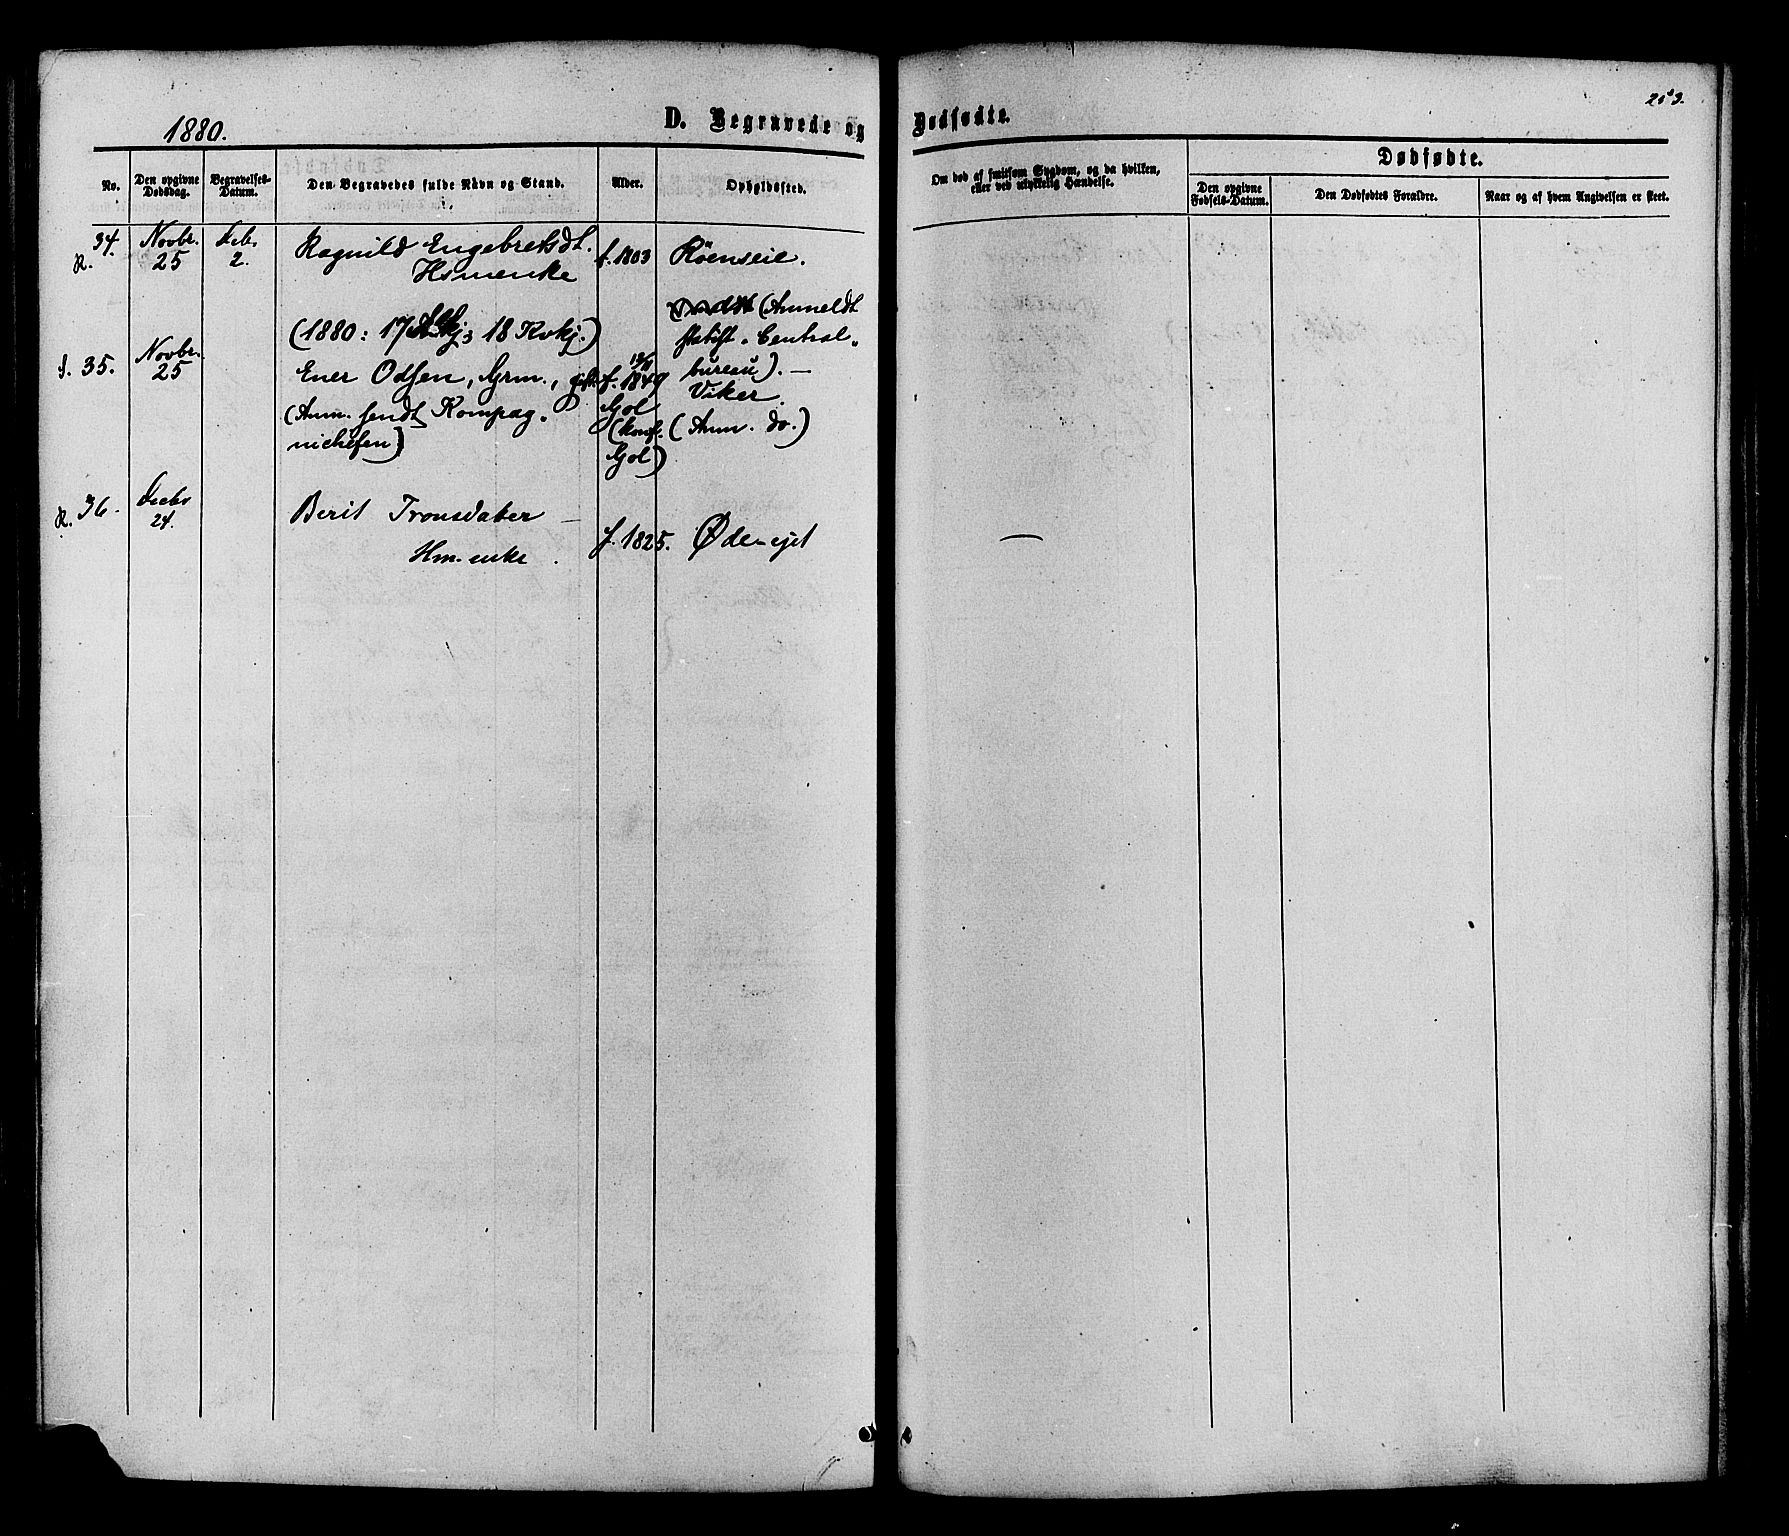 213.
1880.
D. Begravede og Dødfødte.
No.
Den opgivne Dødsdag.
Begravelses-Datum.
Den Begravedes fulde Navn og Stand.
Alder.
Opholdssted.
Om død af smitsom Sygdom, og da hvilken, eller ved ulykkelig Hændelse.
Dødfødte.
Den opgivne Fødsels-Datum.
Den Dødfødtes Forældre.
Naar og af hvem Angivelsen er skeet.
R. 34. Novbr. 25 Debr 2. Ragnild Engebretsdt. f. 1803 Röenseie.
Hsmenke
(1880: 17 Mkj; 18 Kvkj.) (Anmeldt
statist. Central-
S. 35. Novbr. 25 Ener Odsen, Grm., gift f. 1849 bureau). —
Gol Viker.
(Anm. sendt Kompag- (konf. (Anm. do.)
nichefen) Gol)
R. 36. Decbr 24. Berit Tronsdater —
Hm. enke. f. 1825. Øden-ejet
—